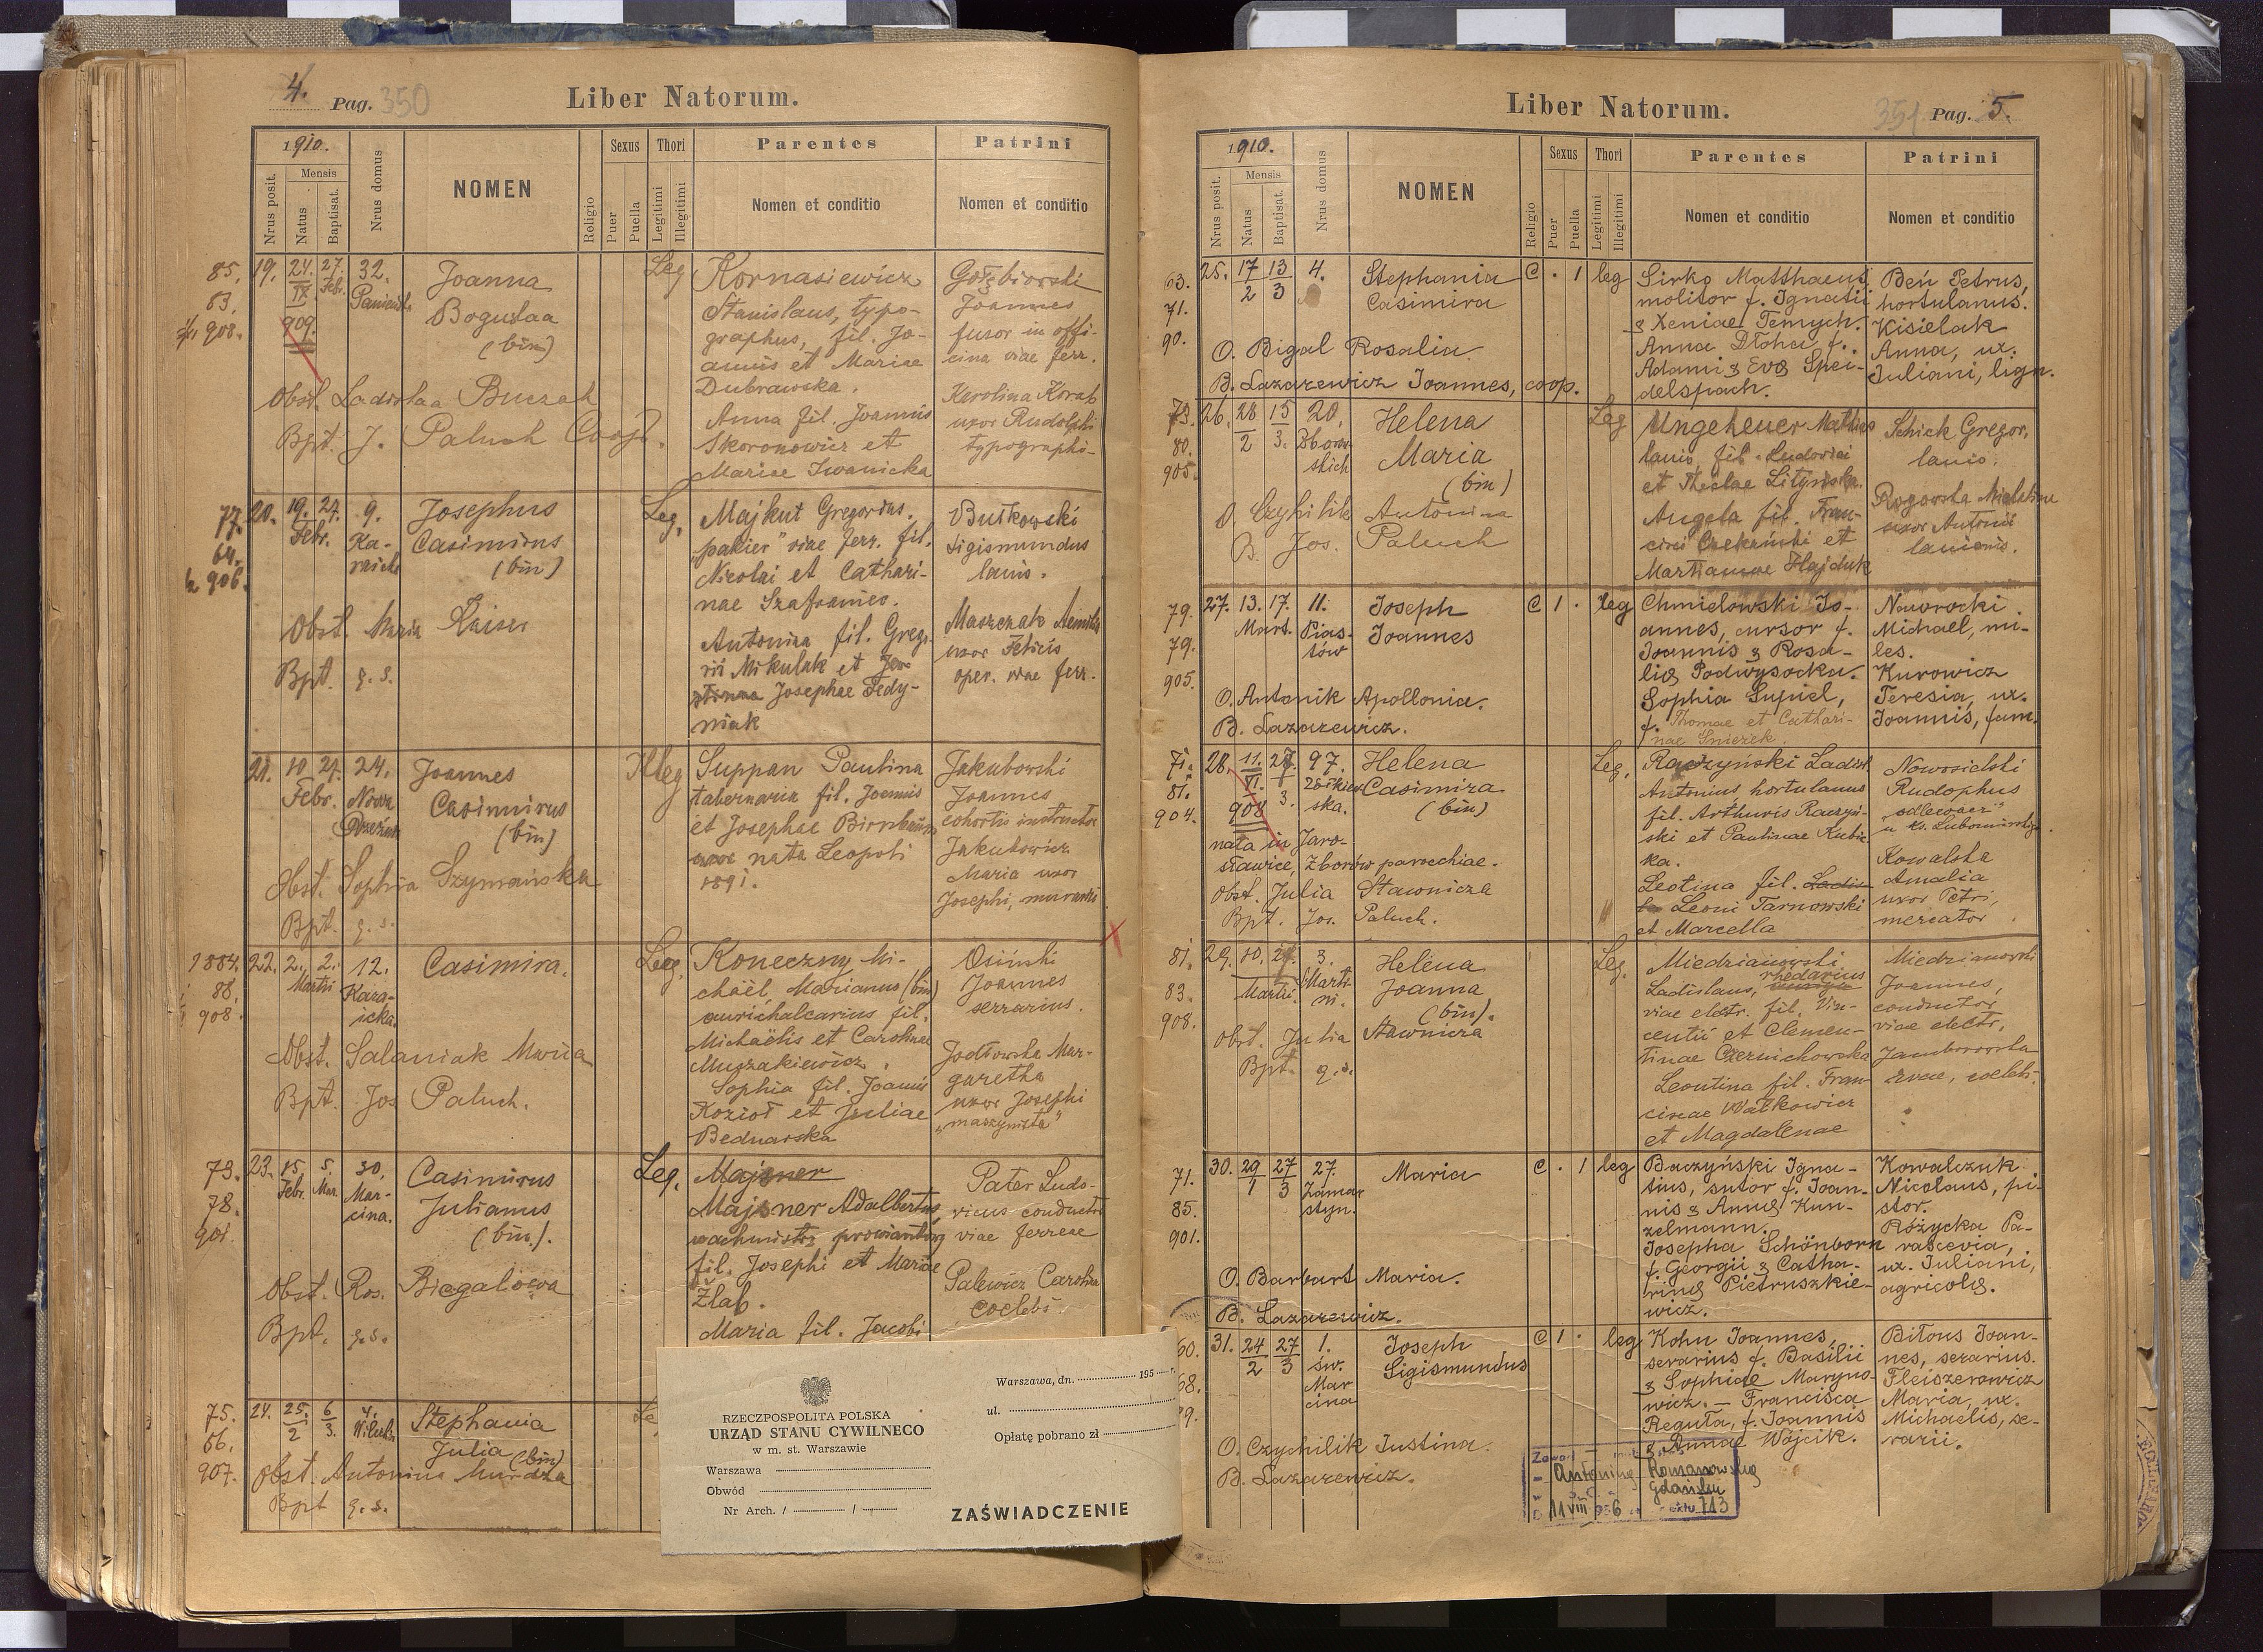 4. Pag. 350
Liber Natorum.
1910.
Nrus posit.
Mensis
Natus
Baptisat.
Nrus domus
NOMEN
Religio
Sexus
Puer
Puella
Thori
Legitimi
Illegitimi
Parentes
Nomen et conditio
Patrini
Nomen et conditio
85.
63.
908.
19. 24. 27. 32.
IX. Febr.
909.
Joanna
Bogusłaa
(bin)
Obst. Ladislaa Buczak
Bpt. J. Paluch Coop.
Leg
Kornasiewicz
Stanislaus, typo-
graphus, fil. Jo-
annis et Mariae
Dubrawska.
Anna fil. Joannis
Skoronowicz et
Mariae Iwanicka
Gołębiorski
Joannes
fusor in offi-
cina viae ferr.
Karolina Korab
uxor Rudolphi
typographi-
77.
64.
906.
20. 19. 27. 9.
Febr. Ka-
Josephus
Casimirus
(bin)
Obst. Maria Kaiser
Bpt. q. s.
Leg.
Majkut Gregorius,
"pakier" viae ferr. fil.
Nicolai et Cathari-
nae Szafraniec.
Antonina fil. Grego-
rii Mikulak et
Josephae Fedy-
niak
Butkowski
Sigismundus
lanio.
Maszczak
uxor Felicis
oper. viae ferr.
21. 10 27. 24.
Febr. Nowa
Joannes
Casimirus
(bin)
Obst. Sophia Szymańska
Bpt. q. s.
Illeg
Suppan Paulina
tabernaria fil. Joannis
et Josephae Birnbaum
nata Leopoli
1891.
Jakubowski
Joannes
cohortis instructor
Jakubowicz
Maria uxor
Josephi, murarii
1884.
88.
908.
22. 2. 2. 12.
Martii
Casimira.
Obst. Salaniak Maria
Bpt. Jos Paluch.
Leg.
Koneczny Mi-
chaël Marianus (bin)
aurichalcarius fil.
Michaëlis et Carolinae
Muszakiewicz.
Sophia fil. Joannis
Kozioł et Juliae
Bednarska
Osiński
Joannes
serrarius.
Jodłowska Mar-
garetha
uxor Josephi
„maszynista"
73.
78.
901.
23. 15. 5. 30.
Febr. Mar. Mar-
cina.
Casimirus
Julianus
(bin).
Obst. Ros. Biegalowa
Bpt. q. s.
Leg.
Majsner
Majsner Adalbertus,
wachmistrz prowiantowy
fil. Josephi et Mariae
Żlab.
Maria fil. Jacobi
Pater Ludo-
vicus conductor
viae ferreae
Palewicz Carolina
coelebs
75.
66.
907.
24. 25. 6 4.
2 3.
Stephania
Julia (bin)
Obst. Antonina Murdza
Bpt q. s.
RZECZPOSPOLITA POLSKA
URZĄD STANU CYWILNEGO
w m. st. Warszawie
Warszawa
Obwód
Nr Arch. / /
Warszawa, dn. 195 r.
ul.
Opłatę pobrano zł
ZAŚWIADCZENIE
Liber Natorum.
351 Pag. 5.
1910.
Nrus posit.
Mensis
Natus
Baptisat.
Nrus domus
NOMEN
Religio
Sexus
Puer
Puella
Thori
Legitimi
Illegitimi
Parentes
Nomen et conditio
Patrini
Nomen et conditio
63.
71.
90.
25. 17 13 4.
2 3
Stephania
Casimira
C . 1 leg
O. Bigal Rosalia.
B. Lazarewicz Joannes, coop.
Sirko Matthaeus
molitor f. Ignatii
& Xeniae Temych.
Anna Dłoha f.
Adami & Evae Spei-
delspach.
Beń Petrus,
hortulanus.
Kisielak
Anna, ux.
Iuliani, lign.
73.
80.
905.
26. 28 15 20.
2 3.
Helena
Maria
(bin)
O. Czyhilik Antonina
B. Jos. Paluch
Leg
Ungeheuer Mathias
lanio, fil. Ludovici
et Theclae Lityńska.
Angela fil. Fran-
cisci Czekański et
Martianae Hajduk
Schick Gregor,
lanio.
Rogowska
uxor Antonii
lanionis.
79.
79.
905.
27. 13. 17. 11.
Mart. Pias-
tów
Joseph
Joannes
C 1 . leg
O. Antonik Apollonia.
B. Lazarewicz.
Chmielowski Jo-
annes, cursor f.
Joannis & Rosa-
liae Podwysocka.
Sophia Supiel,
f. Thomae et Cathari-
nae Snieżek.
Naworocki
Michael, mi-
les.
Kurowicz
Teresia, ux.
Joannis, fam.
71.
81.
904.
28. 11. 27 97.
VI. 3. Żółkiew-
908 ska.
Helena
Casimira
(bin)
nata in Jaro-
sławice, Zborów parochiae.
Obst. Julia Stawnicza
Bpt. Jos. Paluch.
Leg.
Raczyński Ladisl.
Antonius hortulanus
fil. Arthuris Raczyń-
ski et Paulinae Kubic-
ka.
Leotina fil.
Leoni Tarnowski
et Marcella
Nowosielski
Rudophus
„odlewacz"
u ks. Lubomirskiego
Kowalska
Amalia
uxor Petri,
mercator
81.
83.
908.
29. 10. 27. 3.
Martii. Marti-
ni.
Helena
Joanna
(bin).
Obst. Julia Stawnicza
Bpt. q. s.
Leg.
Miedzianowski
rhedarius
Ladislaus,
viae electr. fil. Vin-
centii et Clemen-
tinae Czernichowska
Leontina fil. Fran-
ciscae Wałkowicz
et Magdalenae
Miedzianowski
Joannes,
conductor
viae electr,
Jamborowska
Evae, coeleb.
71.
85.
901.
30. 29 27 27.
1 3 Zamar-
styn.
Maria
C . 1 leg
O. Barbart Maria.
B. Lazarewicz.
Baczyński Igna-
tius, sutor f. Joan-
nis & Annae Kun-
zelmann.
Josepha Schönborn
f. Georgii & Catha-
rinae Pietruszkie-
wicz.
Kowalczuk
Nicolaus, pi-
stor.
Różycka Pa-
rascevia,
ux. Iuliani,
agricolae.
60.
68.
31. 24 27 1.
2 3 św.
Mar
cina
Joseph
Sigismundus
C 1 . leg
O. Czychilik Justina.
B. Lazarewicz.
Kohn Joannes,
serarius f. Basilii
& Sophiae Maryno-
wicz. – Francisca
Reguła, f. Joannis
& Annae Wójcik.
Bitous Joan-
nes, serarius.
Fleiszerowicz
Maria, ux.
Michaelis, se-
rarii.
Antoning Romanowską
Gdańsku
11 VIII 956 aktu 713